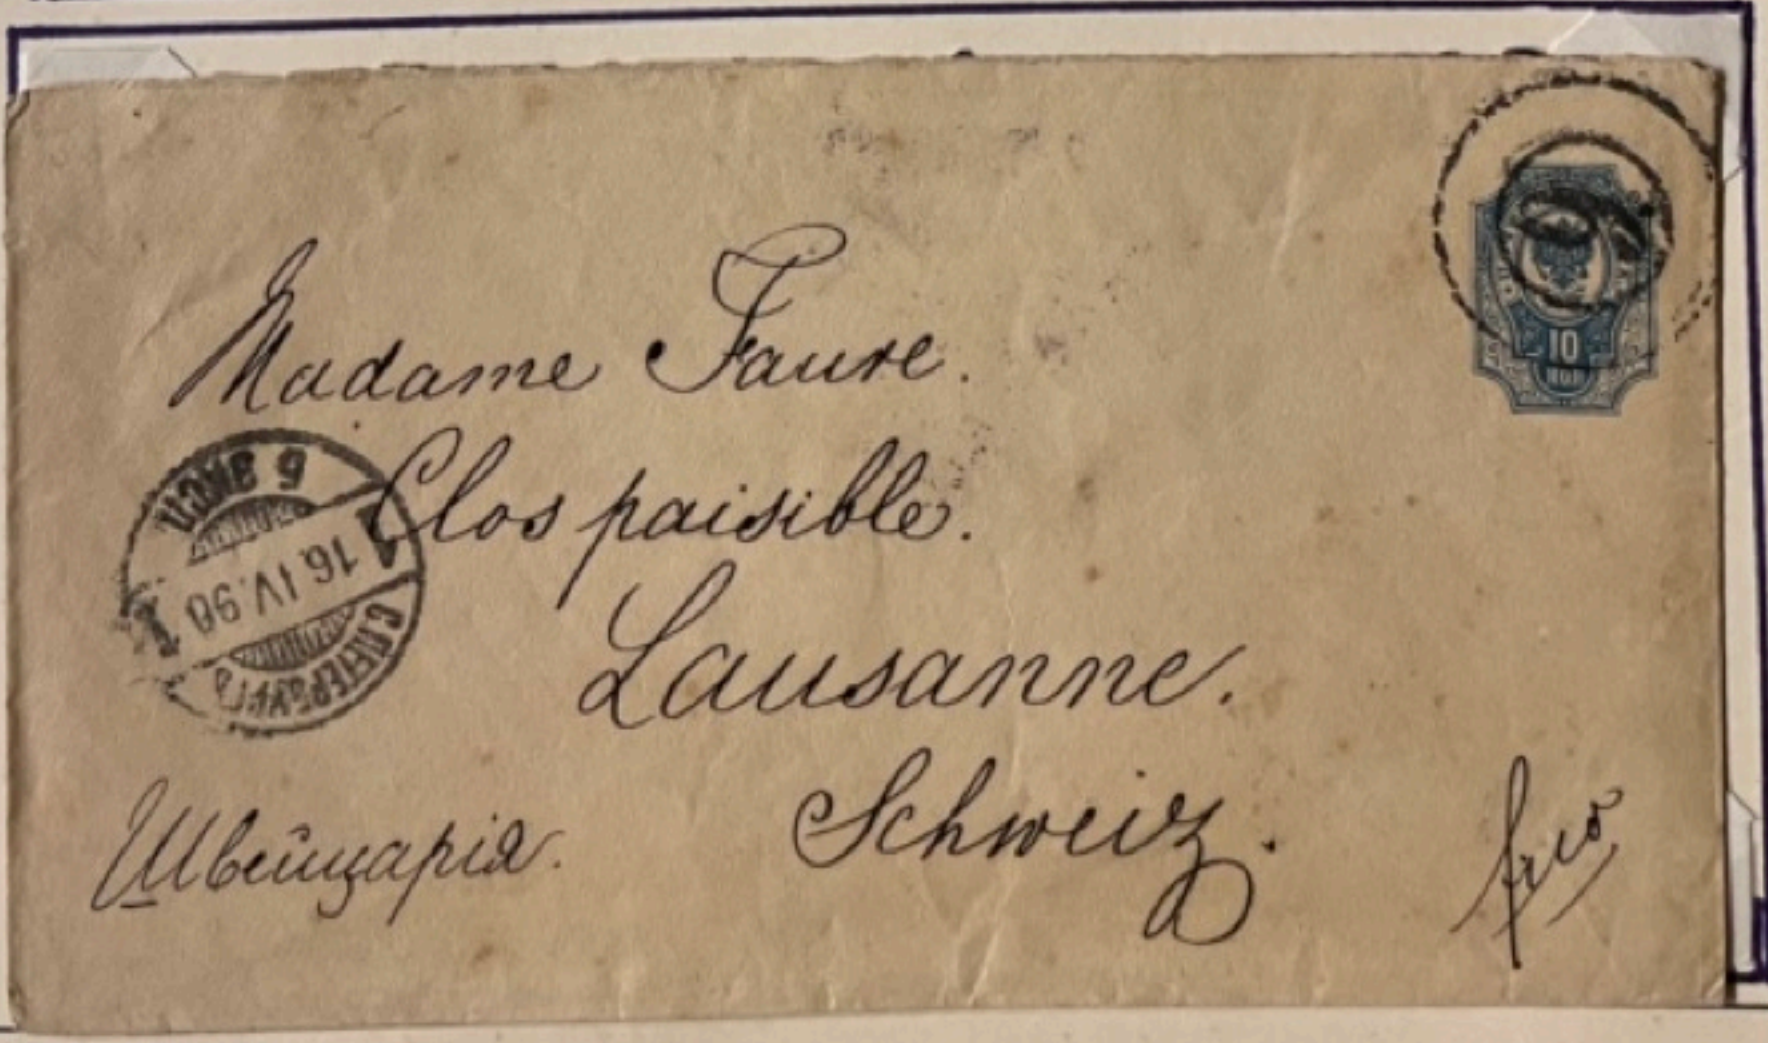 10
КОП
Madame Faure.
Clos paisible.
Lausanne.
Schweiz.
Швейцарія.
fco
С.ПЕТЕРБУРГЪ
1
16.IV.98
1
6 ЭКСП.